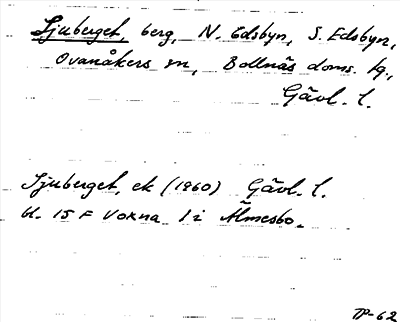 Ljuberget, berg, N. Edsbyn, S. Edsbyn,
Ovanåkers sn, Bollnäs doms. tg.,
Gävl. l.
Ljuberget, ek (1960) Gävl. l.
bl. 15 F Voxna 1 i Älmesbo.
TP-62